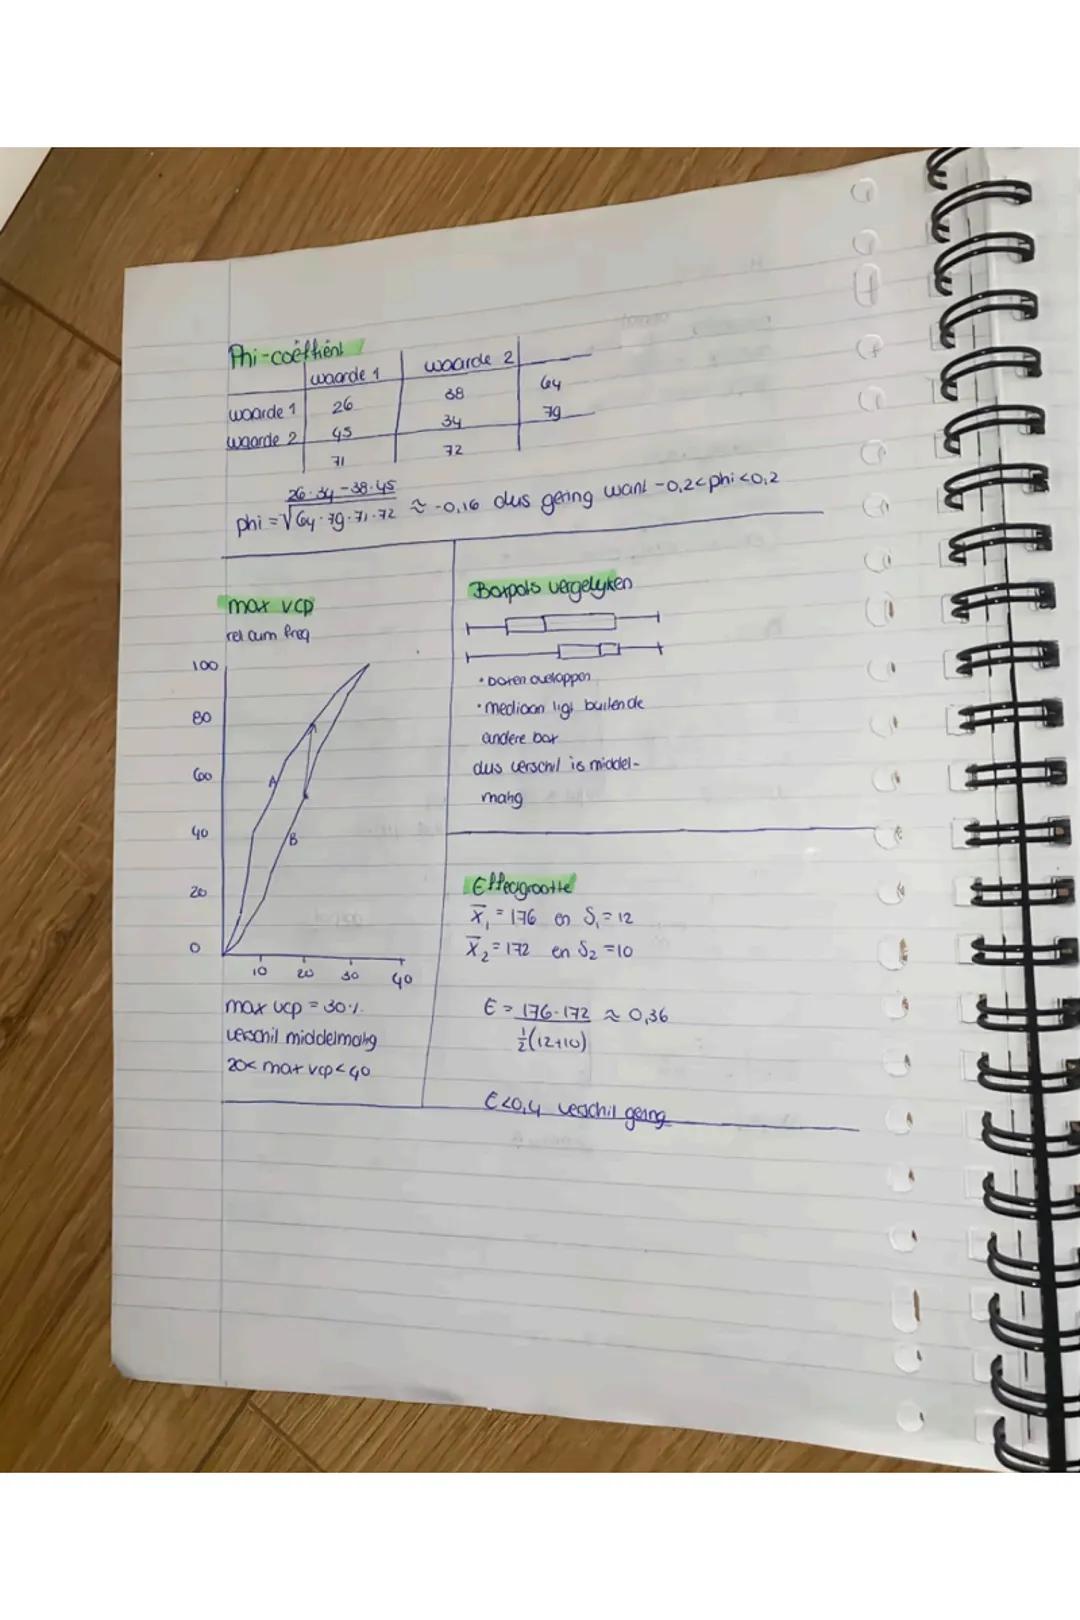 Phi-coëffiënt
waarde 1 waarde 2
waarde 1 26 38 64
waarde 2 45 34 79
71 72
phi = 26·34-38·45 / √64·79·71·72 ≈ -0,16 dus gering want -0,2<phi<0,2
max vcp
rel cum freq
100
80
60
40
20
0
A
B
10 20 30 40
max vcp = 30%
verschil middelmatig
20< max vcp < 40
Boxpots vergelyken
• boxen overlappen
• mediaan ligt buiten de
andere box
dus verschil is middel-
matig
Effectgrootte
X̄₁ = 176 en S₁ = 12
X̄₂ = 172 en S₂ = 10
E = 176-172 / ½(12+10) ≈ 0,36
E<0,4 verschil gering